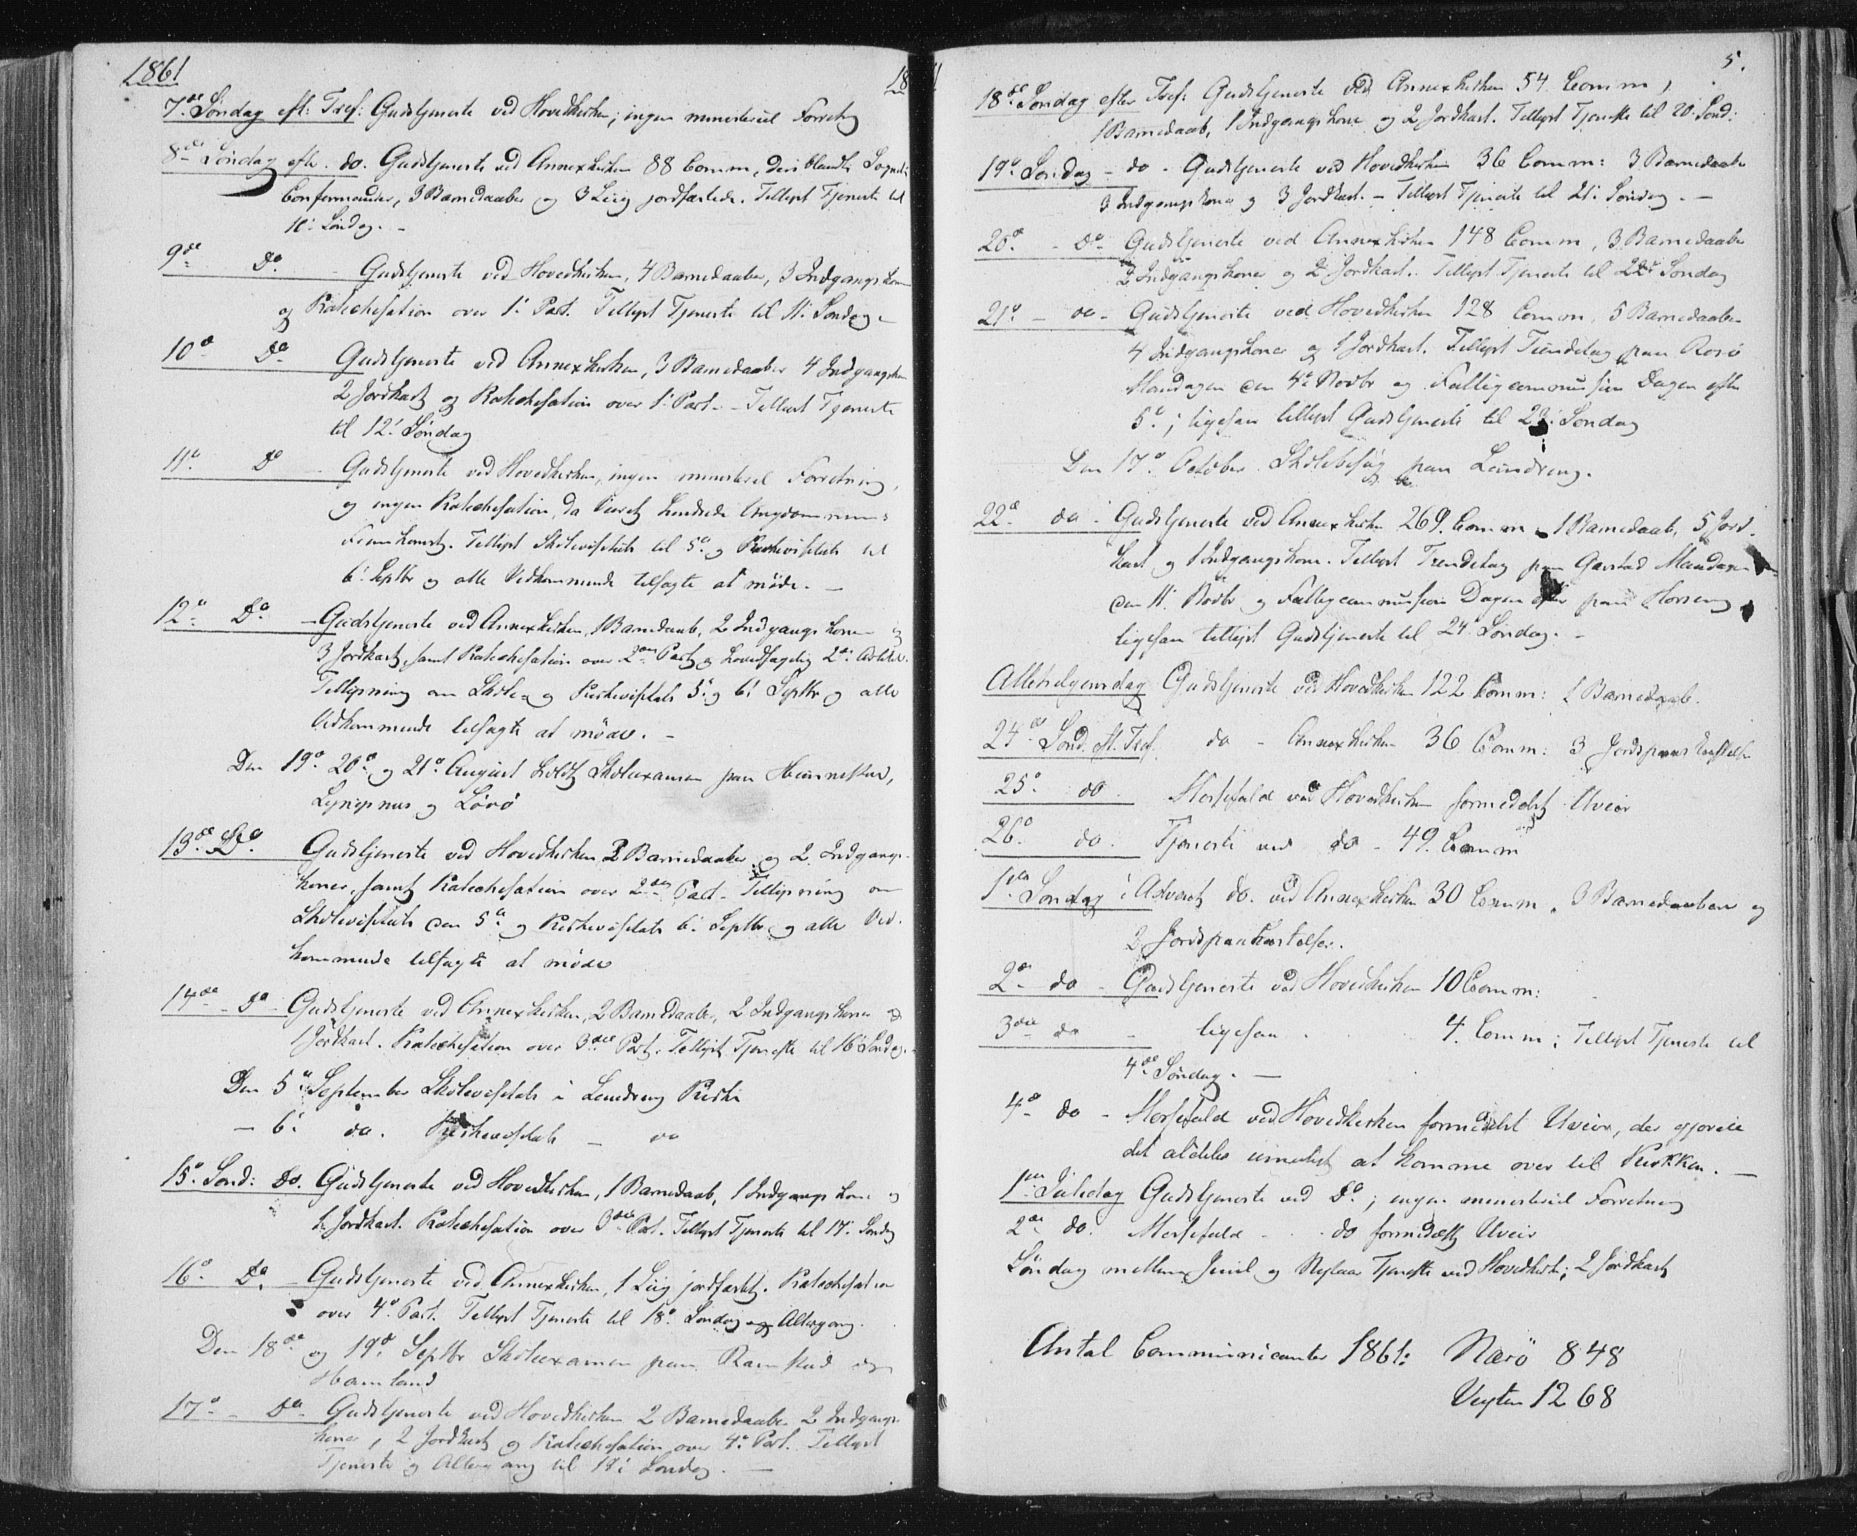 1861
7de Søndag eft: Tref: Gudstjeneste ved Hovedkirken; ingen ministeriel Forretng
8de Søndag efter do. Gudstjeneste ved Annexkirken 88 Comm, deriblandt Sognets
Confirmander, 3 Barnedaaber og 3 Liig jordfæstede. Tillyst Tjeneste til
10: Søndag. -
9de Do. Gudstjeneste ved Hovedkirken, 4 Barnedaaber, 3 Indgangskoner
og Katechisation over 1: Part. Tillyst Tjeneste til 11: Søndag -
10de Do Gudstjeneste ved Annexkirken, 3 Barnedaaber 4 Indgangskoner
2 Jordkast og Katechisation over 1: Part - Tillyst Tjeneste
til 12: Søndag
11te Do Gudstjeneste ved Hovedkirken, ingen ministeriel Forretning,
og ingen Katechisation, da Veiret hindrede Ungdommens
Fremkomst. Tillyst Skolevisitats til 5te og Kirkevisitats til
6: Septbr og alle Vedkommende tilsagte at møde. -
12te Do - Gudstjeneste ved Annexkirken, 1 Barnedaab, 2 Indgangskoner og
3 Jordkast, samt Katechisation over 2den Part og hovedsagelig 2den Artikel.
Tillysning om Skole og Kirkevisitats 5: og 6: Septbr og alle
Vedkommende tilsagte at møde. -
Den 19de 20de og 21de August holdt Skoleexamen paa
Lyngsnes og Lövö
13de Do. Gudstjeneste ved Hovedkirken 2 Barnedaaber og 2 Indgangs-
koner, samt Katechisation over 2den Part - Tillysning om
Skolevisitats den 5te og Kirkevisitats 6: Septbr og alle Ved-
kommende tilsagte at møde
14de - Do - Gudstjeneste ved Annexkirken, 2 Barnedaaber, 2 Indgangskoner og
1 Jordkast. Katechisation over 3die Part. Tillyst Tjeneste til 16 Søndag.
Den 5te September Skolevisitats i Lundring Kirke
- 6: do. Kirkevisitats - do
15de Sönd: Do. Gudstjeneste ved Hovedkirken, 1 Barnedaab, 1 Indgangskone og
Jordkast. Katechisation over 3die Part. Tillyst Tjeneste til 17: Søndag
16de Do. - Gudstjeneste ved Annexkirken, 1 Liig jordfæstet. Katechisation
over 4de Part. Tillyst Tjeneste til 18de Søndag og Altergang.
Den 18de og 19de Septbr Skoleexamen paa Ramstad og
Hamland
17de - Do - Gudstjeneste ved Hovedkirken 2 Barnedaaber 2 Indgangs-
koner, 2 Jordkast og Katechisation over 4de Part. Tillyst
Tjeneste og Altergang til 19: Søndag. -
5.
18de Søndag efter Tref: Gudstjeneste ved Annexkirken 54 Comm,
1 Barnedaab, 1 Indgangskone og 2 Jordkast. Tillyst Tjeneste til 20: Sönd:
19de Søndag - do - Gudstjeneste ved Hovedkirken 36 Comm: 3 Barnedaaber
3 Indgangskoner og 3 Jordkast. - Tillyst Tjeneste til 21: Søndag. -
20de - Do - Gudstjeneste ved Annexkirken 148 Comm, 3 Barnedaaber
2 Indgangskoner og 2 Jordkast. Tillyst Tjeneste til 22de Søndag
21de - do - Gudstjeneste ved Hovedkirken 128 Comm, 5 Barnedaaber
4 Indgangskoner og 1 Jordkast. Tillyst Tiendetag paa Rosö
Mandagen den 4de Novbr og Fattigcommission Dagen efter
5te; ligesaa tillyst Gudstjeneste til 23: Søndag
Den 17de October Skolebesøg paa Lundring.
22de do - Gudstjeneste ved Annexkirken 269. Comm - 1 Barnedaab, 5 Jord-
kast og 1 Indgangskone. Tillyst Tiendetag paa Gavstad Mandagen
den 11: Novbr og Fattigcommission Dagen efter paa Horseng
ligesaa tillyst Gudstjeneste til 24de Søndag. -
Allehelgensdag Gudstjeneste ved Hovedkirken 122 Comm: 1 Barnedaab.
24de Sönd. eft. Tref. do - Annexkirken 36 Comm: 3 Jordspaakastelser
25de do Messefald ved Hovedkirken formedelst Uveir
26de do. Tjeneste ved do - 49. Comm
1ste Søndag i Advent do. ved Annexkirken 30 Comm, 3 Barnedaaber og
2 Jordspaakastelser.
2den do - Gudstjeneste ved Hovedkirken 10 Comm:
3die do - ligesaa 4 Comm; Tillyst Tjeneste til
4de Søndag. -
4de do - Messefald ved Hovedkirken formedelst Uveir, der gjorde
det aldeles umuligt at komme over til Kirken. -
1ste Juledag Gudstjeneste ved Do; ingen ministeriel Forretning
2den do. Messefald - do formedelst Uveir
Søndag mellem Juul og Nytaar Tjeneste ved Hovedkirk; 2 Jordkast
Antal Communicanter 1861: Nærö 848
Vigten 1268